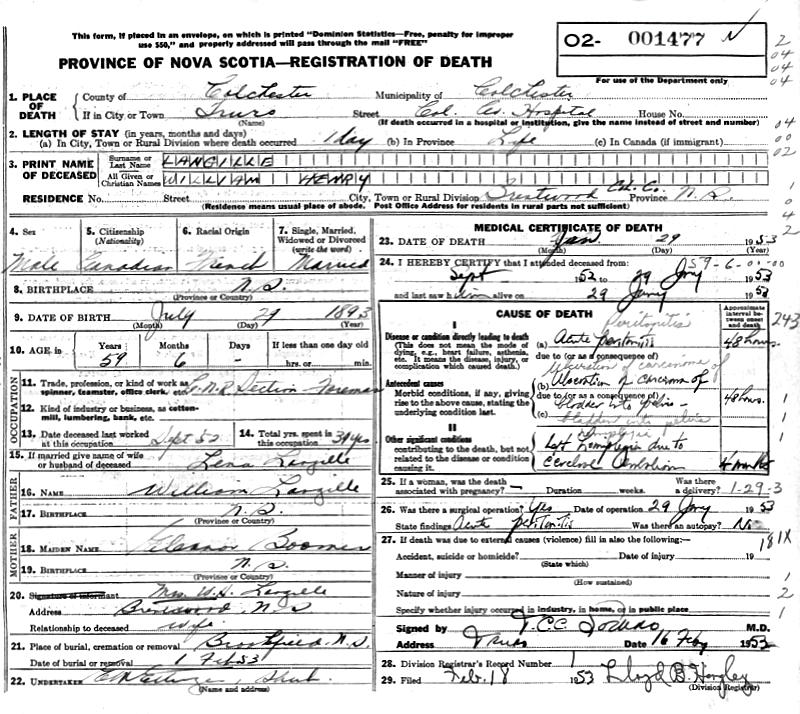 This form, if placed in an envelope, on which is printed "Dominion Statistics—Free, penalty for improper
use $50," and properly addressed will pass through the mail "FREE"
O2- 001477 N
For use of the Department only
PROVINCE OF NOVA SCOTIA—REGISTRATION OF DEATH
1. PLACE OF DEATH County of Colchester Municipality of Colchester
If in City or Town Truro Street Col. Co. Hospital House No.
(Name) (If death occurred in a hospital or institution, give the name instead of street and number)
2. LENGTH OF STAY (in years, months and days)
(a) In City, Town or Rural Division where death occurred 1 day (b) In Province Life (c) In Canada (if immigrant)
3. PRINT NAME OF DECEASED Surname or Last Name LANGILLE
All Given or Christian Names WILLIAM HENRY
RESIDENCE No. Street City, Town or Rural Division Brentwood Col. Co. Province N.S.
(Residence means usual place of abode. Post Office Address for residents in rural parts not sufficient)
4. Sex 5. Citizenship (Nationality) 6. Racial Origin 7. Single, Married, Widowed or Divorced (write the word)
Male Canadian French Married
8. BIRTHPLACE N.S.
(Province or Country)
9. DATE OF BIRTH July 29 1893
(Month) (Day) (Year)
10. AGE in Years Months Days If less than one day old
59 6 - hrs. or min.
OCCUPATION
11. Trade, profession, or kind of work as spinner, teamster, office clerk, etc. C.N.R Section Foreman
12. Kind of industry or business, as cotton-mill, lumbering, bank, etc.
13. Date deceased last worked at this occupation Sept 52 14. Total yrs. spent in this occupation 34 yrs
15. If married give name of wife or husband of deceased Lena Langille
FATHER
16. NAME William Langille
17. BIRTHPLACE N.S.
(Province or Country)
MOTHER
18. MAIDEN NAME Eleanor Boomer
19. BIRTHPLACE N.S.
(Province or Country)
20. Signature of informant Mrs. W.H. Langille
Address Brentwood, N.S
Relationship to deceased wife
21. Place of burial, cremation or removal Brookfield, N.S
Date of burial or removal 1 Feb 53
22. UNDERTAKER
(Name and address)
MEDICAL CERTIFICATE OF DEATH
23. DATE OF DEATH Jan. 29 1953
(Month) (Day) (Year)
24. I HEREBY CERTIFY that I attended deceased from: 59-6-00-00
Sept 1952 to 29 Jany 1953
and last saw him alive on 29 Jany 1953
CAUSE OF DEATH Approximate interval between onset and death
I
Disease or condition directly leading to death
(This does not mean the mode of dying, e.g., heart failure, asthenia, etc. It means the disease, injury, or complication which caused death.)
Peritonitis
(a) Acute peritonitis 48 hours.
due to (or as a consequence of)
Ulceration of carcinoma of
Antecedent causes
Morbid conditions, if any, giving rise to the above cause, stating the underlying condition last.
(b) Ulceration of carcinoma of
due to (or as a consequence of)
bladder into pelvis - 48 hours
(c) bladder into pelvis
II
Other significant conditions
contributing to the death, but not related to the disease or condition causing it.
hemiplegia
Left hemiplegia due to
cerebral embolism 4 months
25. If a woman, was the death associated with pregnancy? - Duration weeks. Was there a delivery? 1-29-3
26. Was there surgical operation? Yes Date of operation 29 Jany 1953
State findings Acute peritonitis Was there an autopsy? No
27. If death was due to external causes (violence) fill in also the following:— 181X
Accident, suicide or homicide? Date of injury 19
(State which)
Manner of injury
(How sustained)
Nature of injury
Specify whether injury occurred in industry, in home, or in public place
Signed by M.D.
Address Truro Date 16 Feby 1953
28. Division Registrar's Record Number 1
29. Filed Feb. 18 1953 Lloyd B.
(Division Registrar)
2
04
04
04
04
00
02
1
0
4
2
243
1
1
1
1
2
1